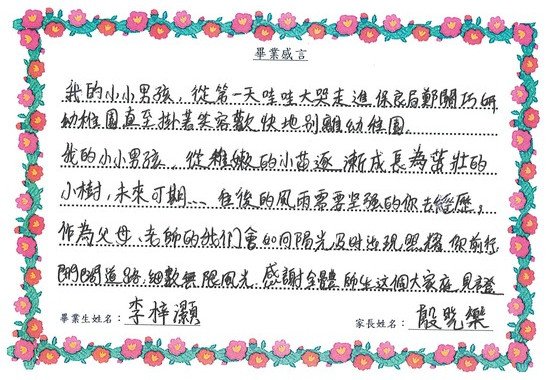 畢業感言
我的小小男孩,從第一天哇哇大哭走進保良局鄭關巧妍
幼稚園直至掛著笑容歡快地別離幼稚園。
我的小小男孩,從稚嫩的小苗逐漸成長為茁壯的
小樹,未來可期...往後的風雨需要堅強的你去經歷,
作為父母、老師的我們會如同陽光及時出現照耀你前行
的道路,細數無限風光.感謝全體師生這個大家庭見證
畢業生姓名: 李梓灝
家長姓名: 殷曉樂